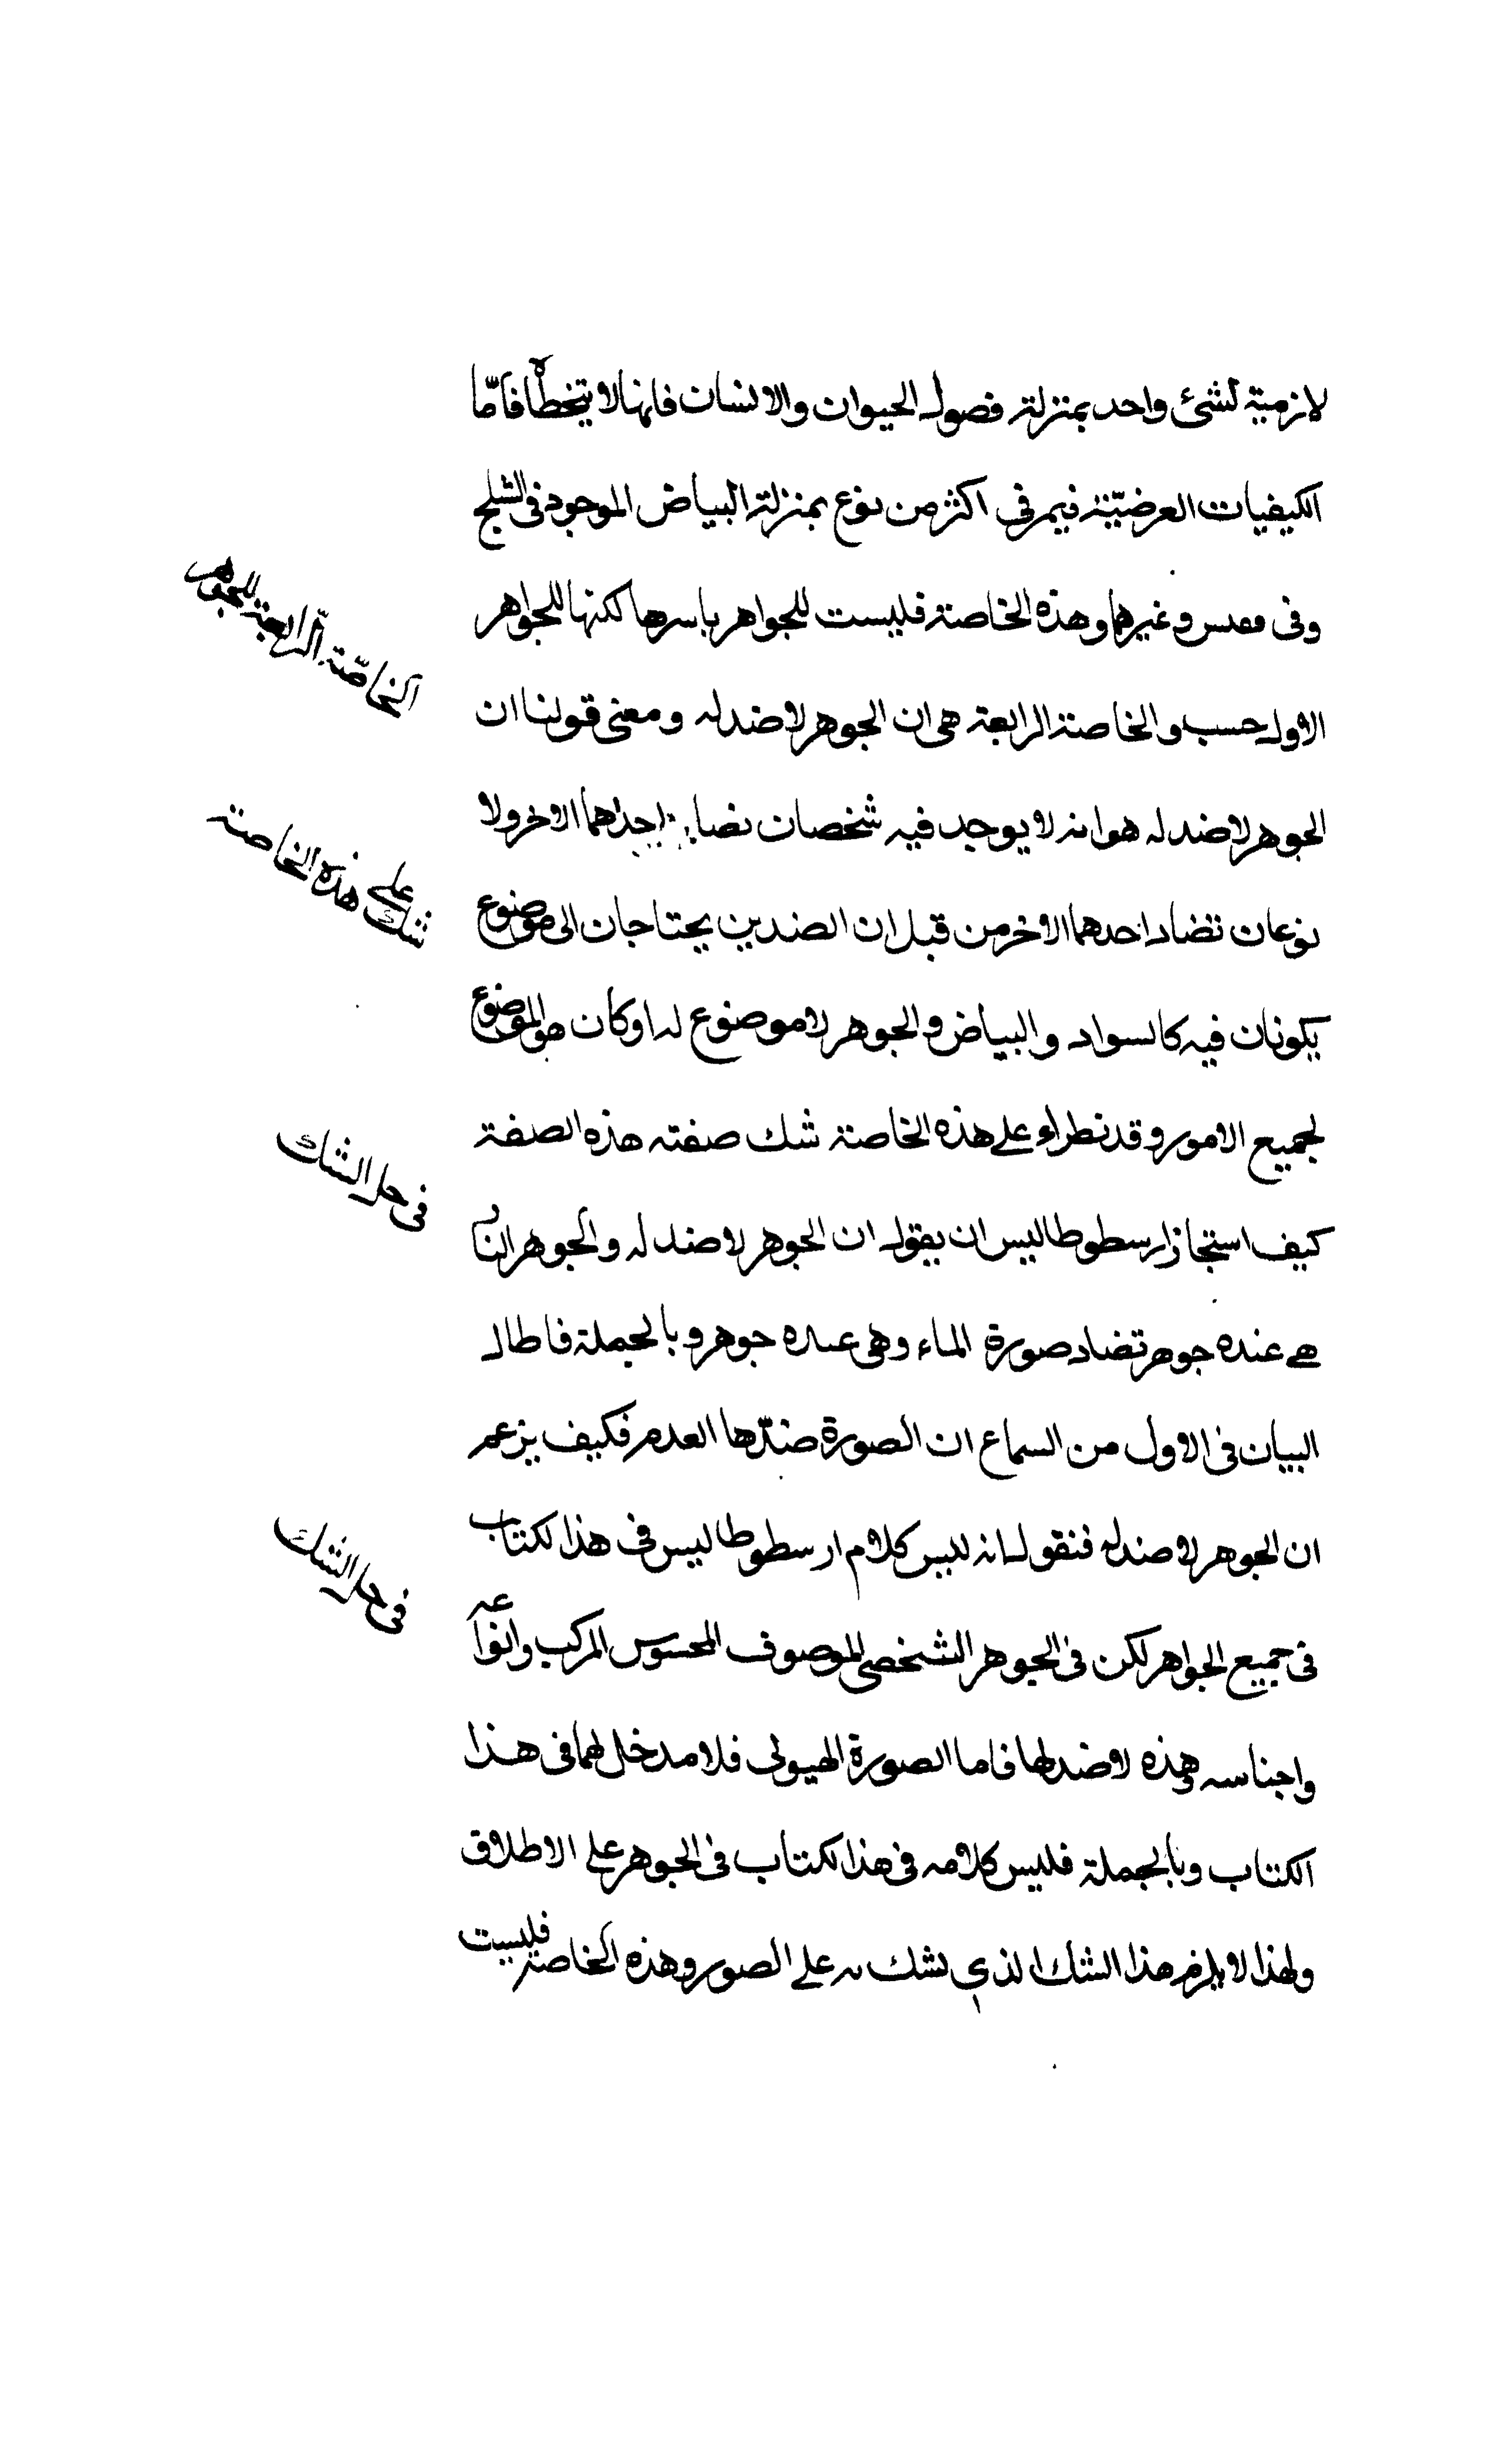 لازمية لشئ واحد بمنزلة فصول الحيوان والانسان فانها لا يتخطاه فامّا
الكيفيات العرضيّة فيمر في اكثر من نوع بمنزلة البياض الموجود في الثلج
وفى ققنس وغيرهما وهذه الخاصة فليست للجواهر باسرها لكنها للجواهر
الخاصّة الرّابعة للجوهر
الاول حسب والخاصة الرابعة هى ان الجوهر لا ضد له ومعنى قولنا ان
الجوهر لا ضد له هو انه لا يوجد فيه شخصان احدهما الاخر ولا
شك على هذه الخاصة
نوعان تضاد احدهما الاخر من قبل ان الضدين يحتاجان الى موضوع
يكونان فيه كالسواد والبياض والجوهر لا موضوع له اوكان هو الموضوع
لجميع الامور وقد نطراء على هذه الخاصة شك صفته هذه الصفة
فى حل الشك
كيف استجاز ارسطوطاليس ان يقول ان الجوهر لا ضد له والجوهر
هے عنده جوهر تضاد صورة الماء وهى عنده جوهر وبالجملة فاطال
البيان فى الاول من السماع ان الصورة ضدّها العدم فكيف يزعم
ان الجوهر لا ضد له فنقول انه ليس كلام ارسطوطاليس فى هذا لكتاب
فى حل الشك
فى جميع الجواهر لكن فى الجوهر الشخصى الموصوف المحسوس المركب وانواعه
واجناسه وهذه لا ضد لها فاما الصورة الهيولى فلا مدخل لهما فى هذا
الكتاب وبالجملة فليس كلامه فى هذا لكتاب فى الجوهر على الاطلاق
ولهذا لا يلزم هذا الشك الذي نشك به على الصور وهذه الخاصة فليست